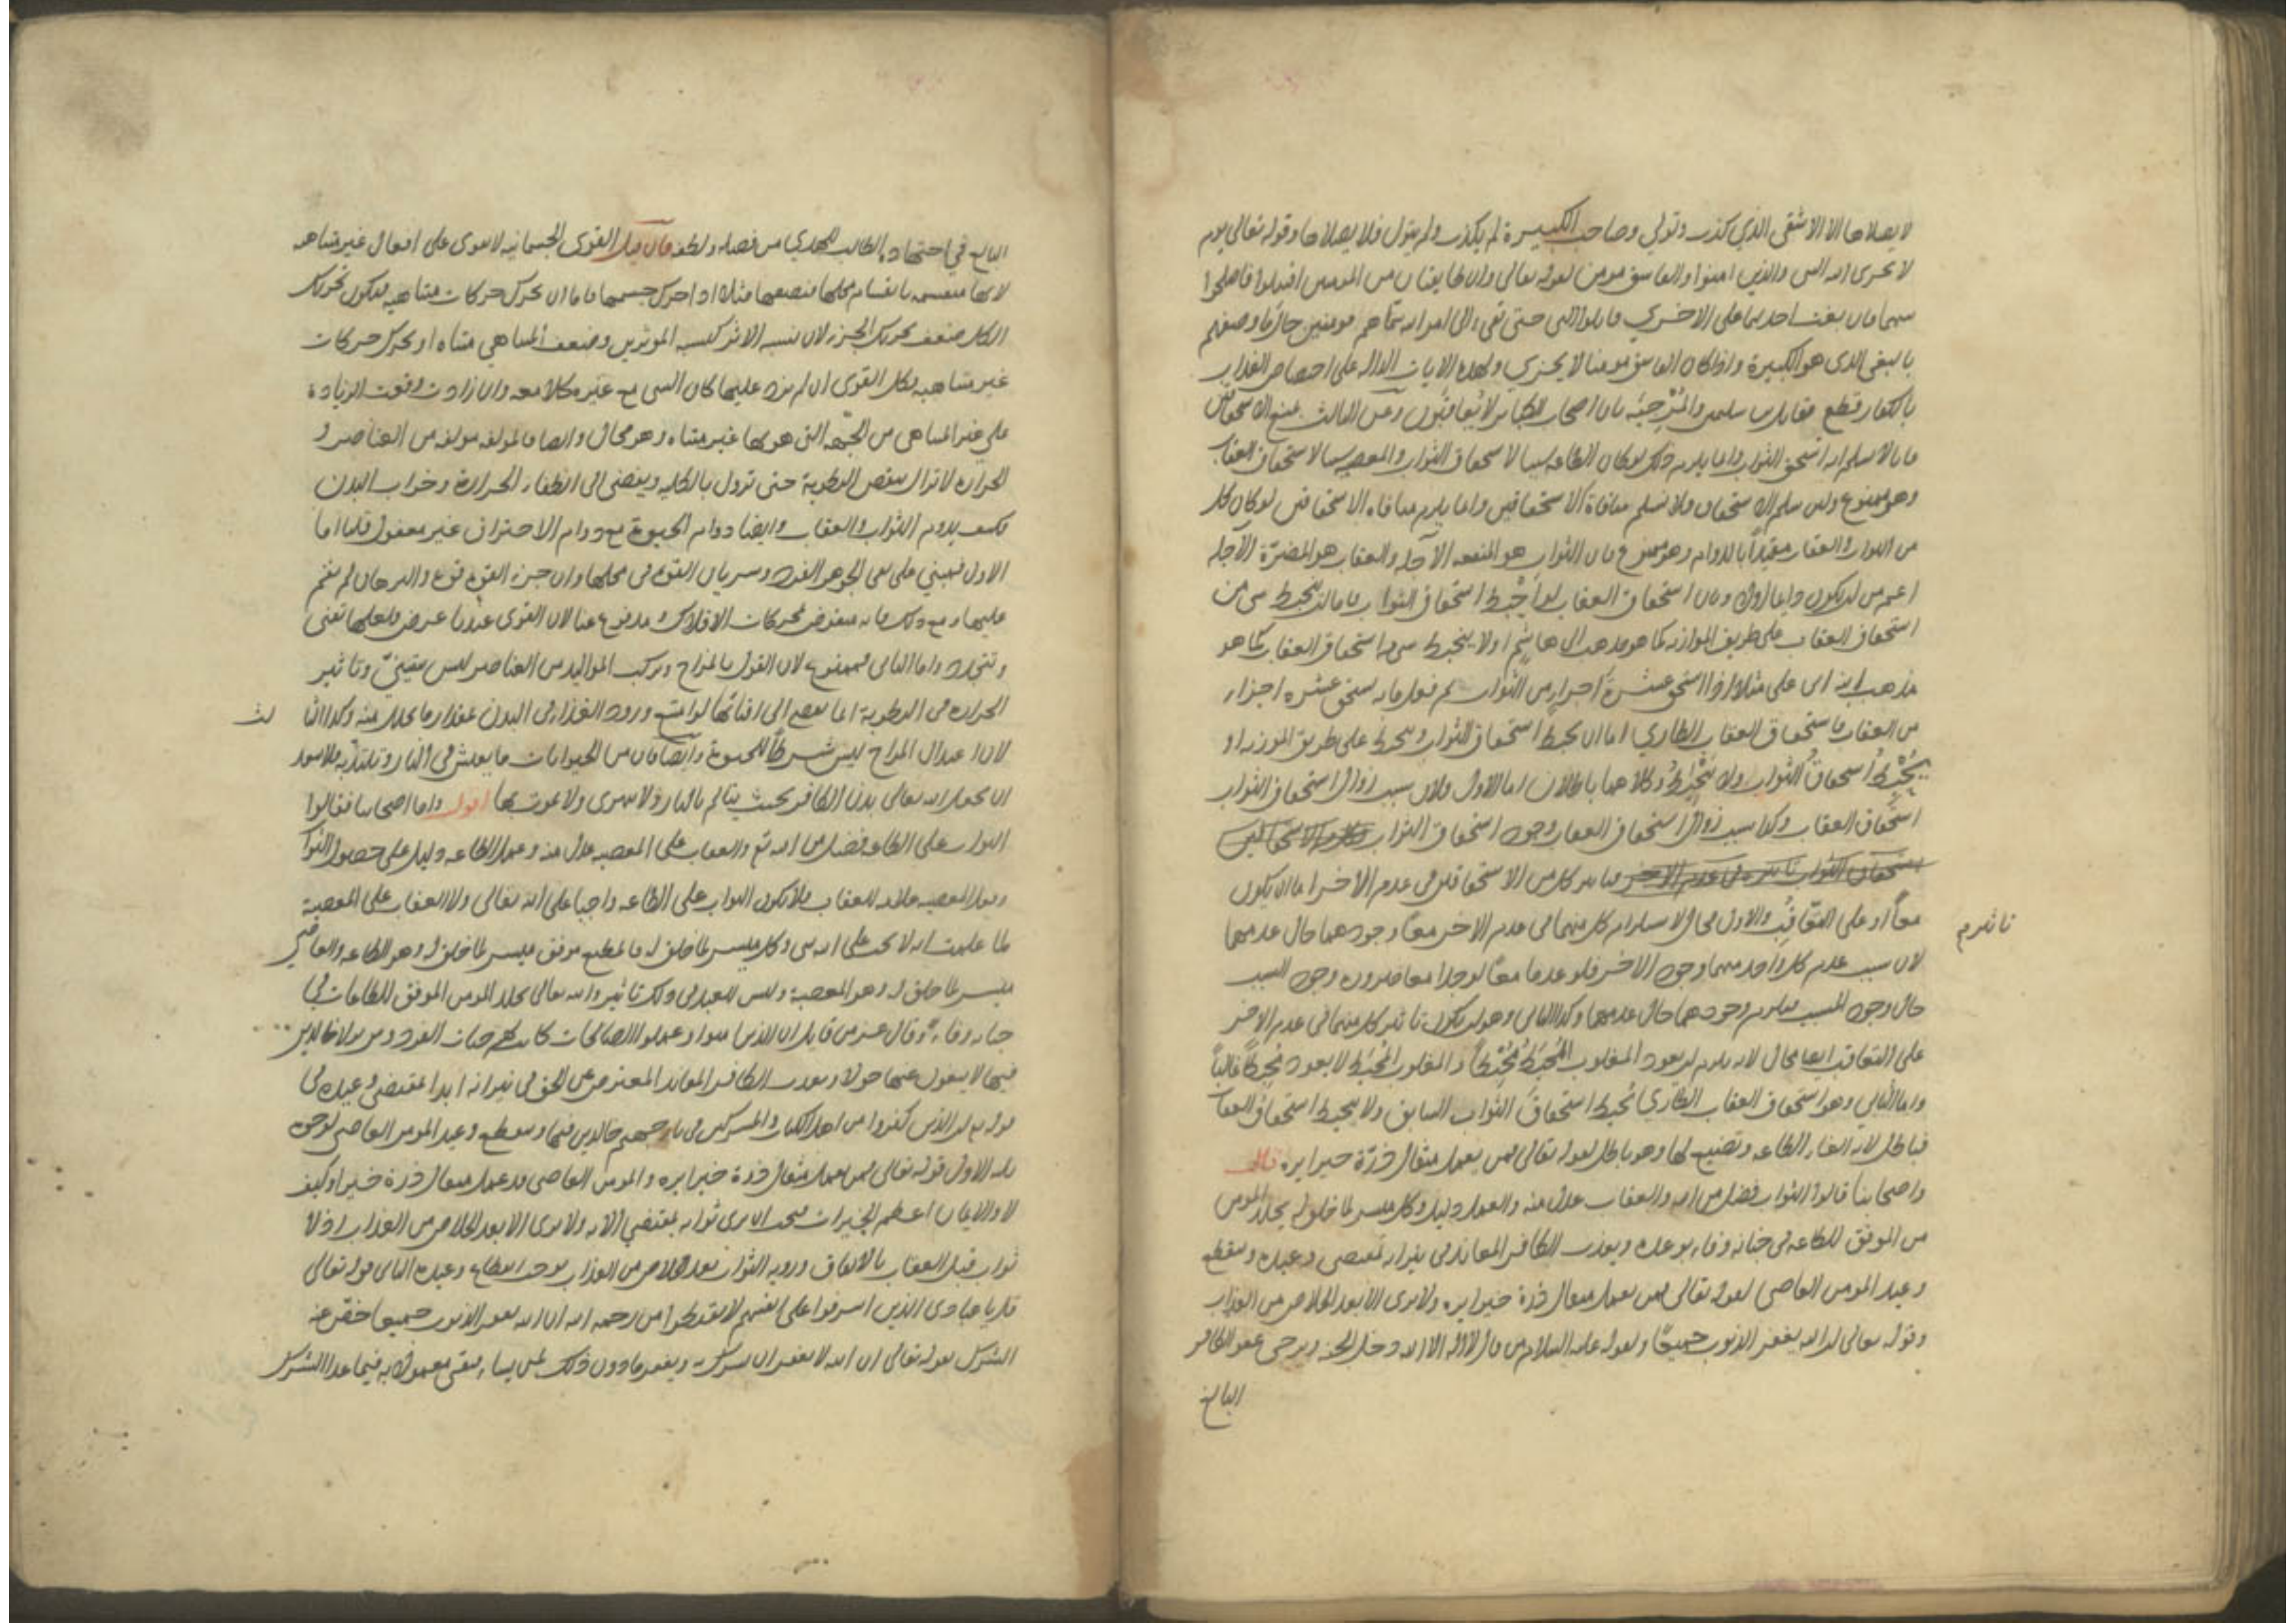 لا يصلاها الا الاشقى الذي كذب وتولى وصاحب الكبيرة لم يكذب ولم يتول فلا يصلاها وقوله تعالى يوم
لا يخزى الله النبي والذين امنوا والفاسق مومن لقوله تعالى وان طايفتان من المومنين اقتتلوا فاصلحوا
بينهما فان بغت احديهما على الاخرى فقاتلوا التي حتى تفىء الى امر الله سماهم مومنين حال ما وصفهم
بالبغى الذى هو الكبيرة واذا كان الفاسق مومنا لا يخزى ولهذه الايات الداله على اختصاص العذاب
بالكفار قطع مقاتل بن سليمن والمرجئه بان اصحاب الكباير لا يعاقبون وعن الثالث بمنع الاستحقاق
فانا لا نسلم انه استحق الثواب وانما يلزم ذلك لو كان الطاعه سببا لاستحقاق الثواب والمعصيه سببا لاستحقاق العقاب
وهو ممنوع ولئن سلم الاستحقاق ولا نسلم منافاة الاستحقاقين وانما يلزم منافاه الاستحقاقين لو كان كل
من الثواب والعقاب مقيدا بالدوام وهو ممنوع فان الثواب هو المنفعه الآجله والعقاب هو المضرة الآجله
اعم من ان يكون دايما او لا وبان استحقاق العقاب لو احبط استحقاق الثواب فاما ان ينحبط شى من
استحقاق العقاب على طريق الموازنه كما هو مذهب ابى هاشم او لا ينحبط شى من استحقاق العقاب كما هو
مذهب ابيه ابى على مثلا اذا استحق عشرة اجزاء من الثواب ثم فعل ما به يستحق عشره اجزاء
من العقاب فاستحقاق العقاب الطاري اما ان يحبط استحقاق الثواب وينحبط على طريق الموازنه او
يحبط استحقاق الثواب ولا ينحبط وكلاهما باطلان اما الاول فلان سبب زوال استحقاق الثواب
استحقاق العقاب وكذا سبب زوال استحقاق العقاب وجود استحقاق الثواب
فتاثير كل من الاستحقاقين في عدم الاخر اما ان يكون
معا او على التعاقب والاول محال لاستلزام كل منهما في عدم الاخر معا وجودهما حال عدمهما
تاثير م
لان سبب عدم كل واحد منهما وجود الاخر فلو عدما معا لوجدا معا ضرورة وجود السبب
حال وجود المسبب فيلزم وجودهما حال عدمهما وكذا الثانى وهو ان يكون تاثير كل منهما في عدم الاخر
على التعاقب ايضا محال لانه يلزم ان يعود المغلوب المحبط محبطا والمغلوب المحبط لا يعود محبطا غالبا
واما الثاني وهو استحقاق العقاب الطاري يحبط استحقاق الثواب السابق ولا ينحبط استحقاق العقاب
فباطل لانه الغاء الطاعه وتضييع لها وهو باطل لقوله تعالى فمن يعمل مثقال ذرة خيرا يره قال
واصحابنا قالوا الثواب فضل من الله والعقاب عدل منه والعمل دليل وكل ميسر لما خلق له يخلد المومن
من الموفق للطاعه في جنانه وفاء بوعده ويعذب الكافر المعاند في نيرانه بمقتضى وعيده وينقطع
وعيد المومن العاصى لقوله تعالى فمن يعمل مثقال ذرة خيرا يره ولا يرى الا بعد الخلاص من العذاب
وقوله تعالى ان الله يغفر الذنوب جميعا ولقوله عليه السلام من قال لا اله الا الله دخل الجنه ويرجى عفو الكافر
البالغ
البالغ في اجتهاده الطالب للهدى من فضله ولطفه فان قيل القوى الجسمانيه لا تقوى على افعال غير متناهيه
لانها منقسمه بانقسام محلها فنصفها مثلا اذا حرك جسمها فاما ان يحرك حركات متناهيه فيكون تحريك
الكل ضعف تحريك الجزء لان نسبه الاثر كنسبه الموثرين وضعف المتناهي متناه او يحرك حركات
غير متناهيه فكل القوى ان لم يزد عليها كان الشى مع غيره كلا معه وان زادت وقعت الزيادة
على غير المتناهى من الجهه التى هو بها غير متناه وهو محال وايضا فالمولف مولف من العناصر و
الحراره لا تزال تنقص الرطوبة حتى تزول بالكليه ويفضى الى انطفاء الحرارة وخراب البدن
فكيف يدوم الثواب والعقاب وايضا دوام الحيوة مع دوام الاحتراق غير معقول قلنا اما
الاول فمبني على نفى الجوهر الفرد وسريان القوه فى محلها وان جزء القوه قوه والبرهان لم يقم
عليها ومع ذلك فانه منقوض بحركات الافلاك ومدفوع عنا لان القوى عندنا عرض فلعلها تفنى
وتتجدد واما الثانى فممنوع لان القول بالمزاج وتركب المواليد من العناصر ليس يقيني وتاثير
الحراره فى الرطوبة انما يفضى الى افنائها لو امتنع ورود الغذاء فى البدن بمقدار ما يتحلل منه وكذا الثا لث
لان اعتدال المزاج ليس شرطا للحيوة وايضا فان من الحيوانات ما يعيش في النار وتلتذ به فلا يبعد
ان يجعل الله تعالى بدن الكافر بحيث يتالم بالنار ولا يتهرى ولا يموت بها اقول واما اصحابنا فقالوا
الثواب على الطاعه فضل من الله تع والعقاب على المعصيه عدل منه وعمل الطاعه دليل على حصول الثواب
وفعل المعصيه علامه للعقاب فلا يكون الثواب على الطاعه واجبا على الله تعالى ولا العقاب على المعصية
لما علمت انه لا يجب على الله شى وكل ميسر لما خلق له فالمطيع موفق ميسر لما خلق له وهو الطاعه والعاصي
ميسر لما خلق له وهو المعصية وليس للعبد في ذلك تاثير والله تعالى يخلد المومن الموفق للطاعات في
جنانه وفاء وقال عز من قايل ان الذين امنوا وعملوا الصالحات كانت لهم جنات الفردوس نزلا خالدين
فيها لا يبغون عنها حولا ويعذب الكافر المعاند المعترض عن الحق في نيرانه ابدا بمقتضى وعيده في
قوله تع ان الذين كفروا من اهل الكتاب والمشركين في نار جهنم خالدين فيها وينقطع وعيد المومن العاصى لوجوه
ثلثه الاول قوله تعالى فمن يعمل مثقال ذرة خيرا يره والمومن العاصى قد عمل مثقال ذرة خيرا وكيف
لا والايمان اعظم الخيرات فيجب ان يرى ثوابه بمقتضى الآيه ولا يرى الا بعد الخلاص من العذاب اذ لا
ثواب قبل العقاب بالاتفاق ورويه الثواب بعد الخلاص من العذاب يوجب انقطاع وعيده الثانى قوله تعالى
قل يا عبادى الذين اسرفوا على انفسهم لا تقنطوا من رحمه الله ان الله يغفر الذنوب جميعا خص عنه
الشرك لقوله تعالى ان الله لا يغفر ان يشرك به ويغفر ما دون ذلك لمن يشاء فبقى معمولا به فيما عدا الشرك